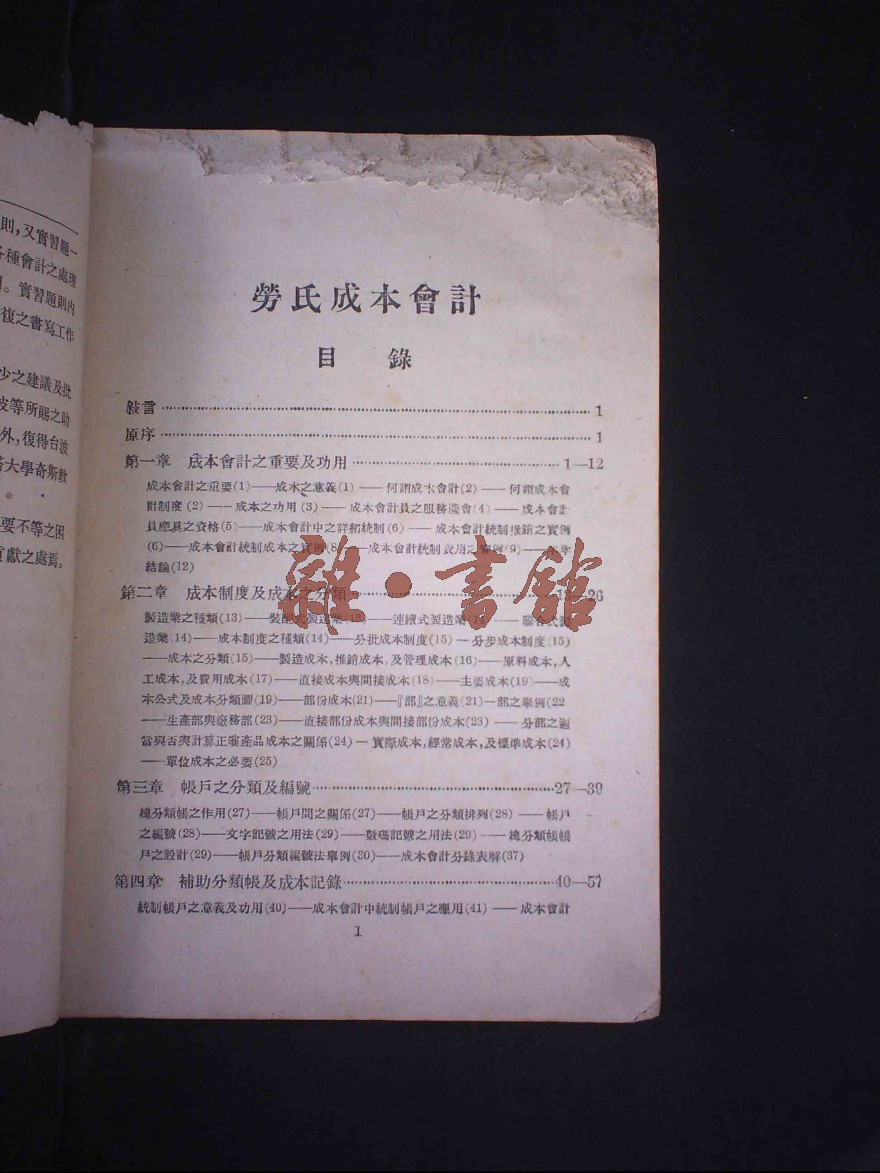 則，又實習題一
各種會計之處理
。實習題則內
複之書寫工作
少之建議及批
波等所賜之助
外，復得台波
大學奇斯教
要不等之困
獻之處焉。
勞氏成本會計
目 錄
敍言…………1
原序…………1
第一章 成本會計之重要及功用…………1—12
成本會計之重要(1)——成本之意義(1)——何謂成本會計(2)——何謂成本會
計制度(2)——成本之功用(3)——成本會計員之服務機會(4)——成本會計
員應具之資格(5)——成本會計中之詳細統制(6)——成本會計統制推銷之實例
(6)——成本會計統制成本之實例(8)——成本會計統制費用之實例(9)——
結論(12)
第二章 成本制度及成本之分類…………13—26
製造業之種類(13)——裝配式製造業(13)——連續式製造業(14)——聯合式製
造業(14)——成本制度之種類(14)——分批成本制度(15)—分步成本制度(15)
——成本之分類(15)——製造成本，推銷成本，及管理成本(16)——原料成本，人
工成本，及費用成本(17)——直接成本與間接成本(18)——主要成本(19)——成
本公式及成本分類圖(19)——部份成本(21)——『部』之意義(21)—部之舉例(22
——生產部與廠務部(23)——直接部份成本與間接部份成本(23)——分部之適
當與否與計算正確產品成本之關係(24)—實際成本，經常成本，及標準成本(24)
——單位成本之必要(25)
第三章 帳戶之分類及編號…………27—39
總分類帳之作用(27)——帳戶間之關係(27)——帳戶之分類排列(28)——帳戶
之編號(28)——文字記號之用法(29)——數碼記號之用法(29)——總分類帳帳
戶之設計(29)——帳戶分類編號法舉例(30)——成本會計分錄表解(37)
第四章 補助分類帳及成本記錄…………40—57
統制帳戶之意義及功用(40)——成本會計中統制帳戶之應用(41)——成本會計
1
雜·書館